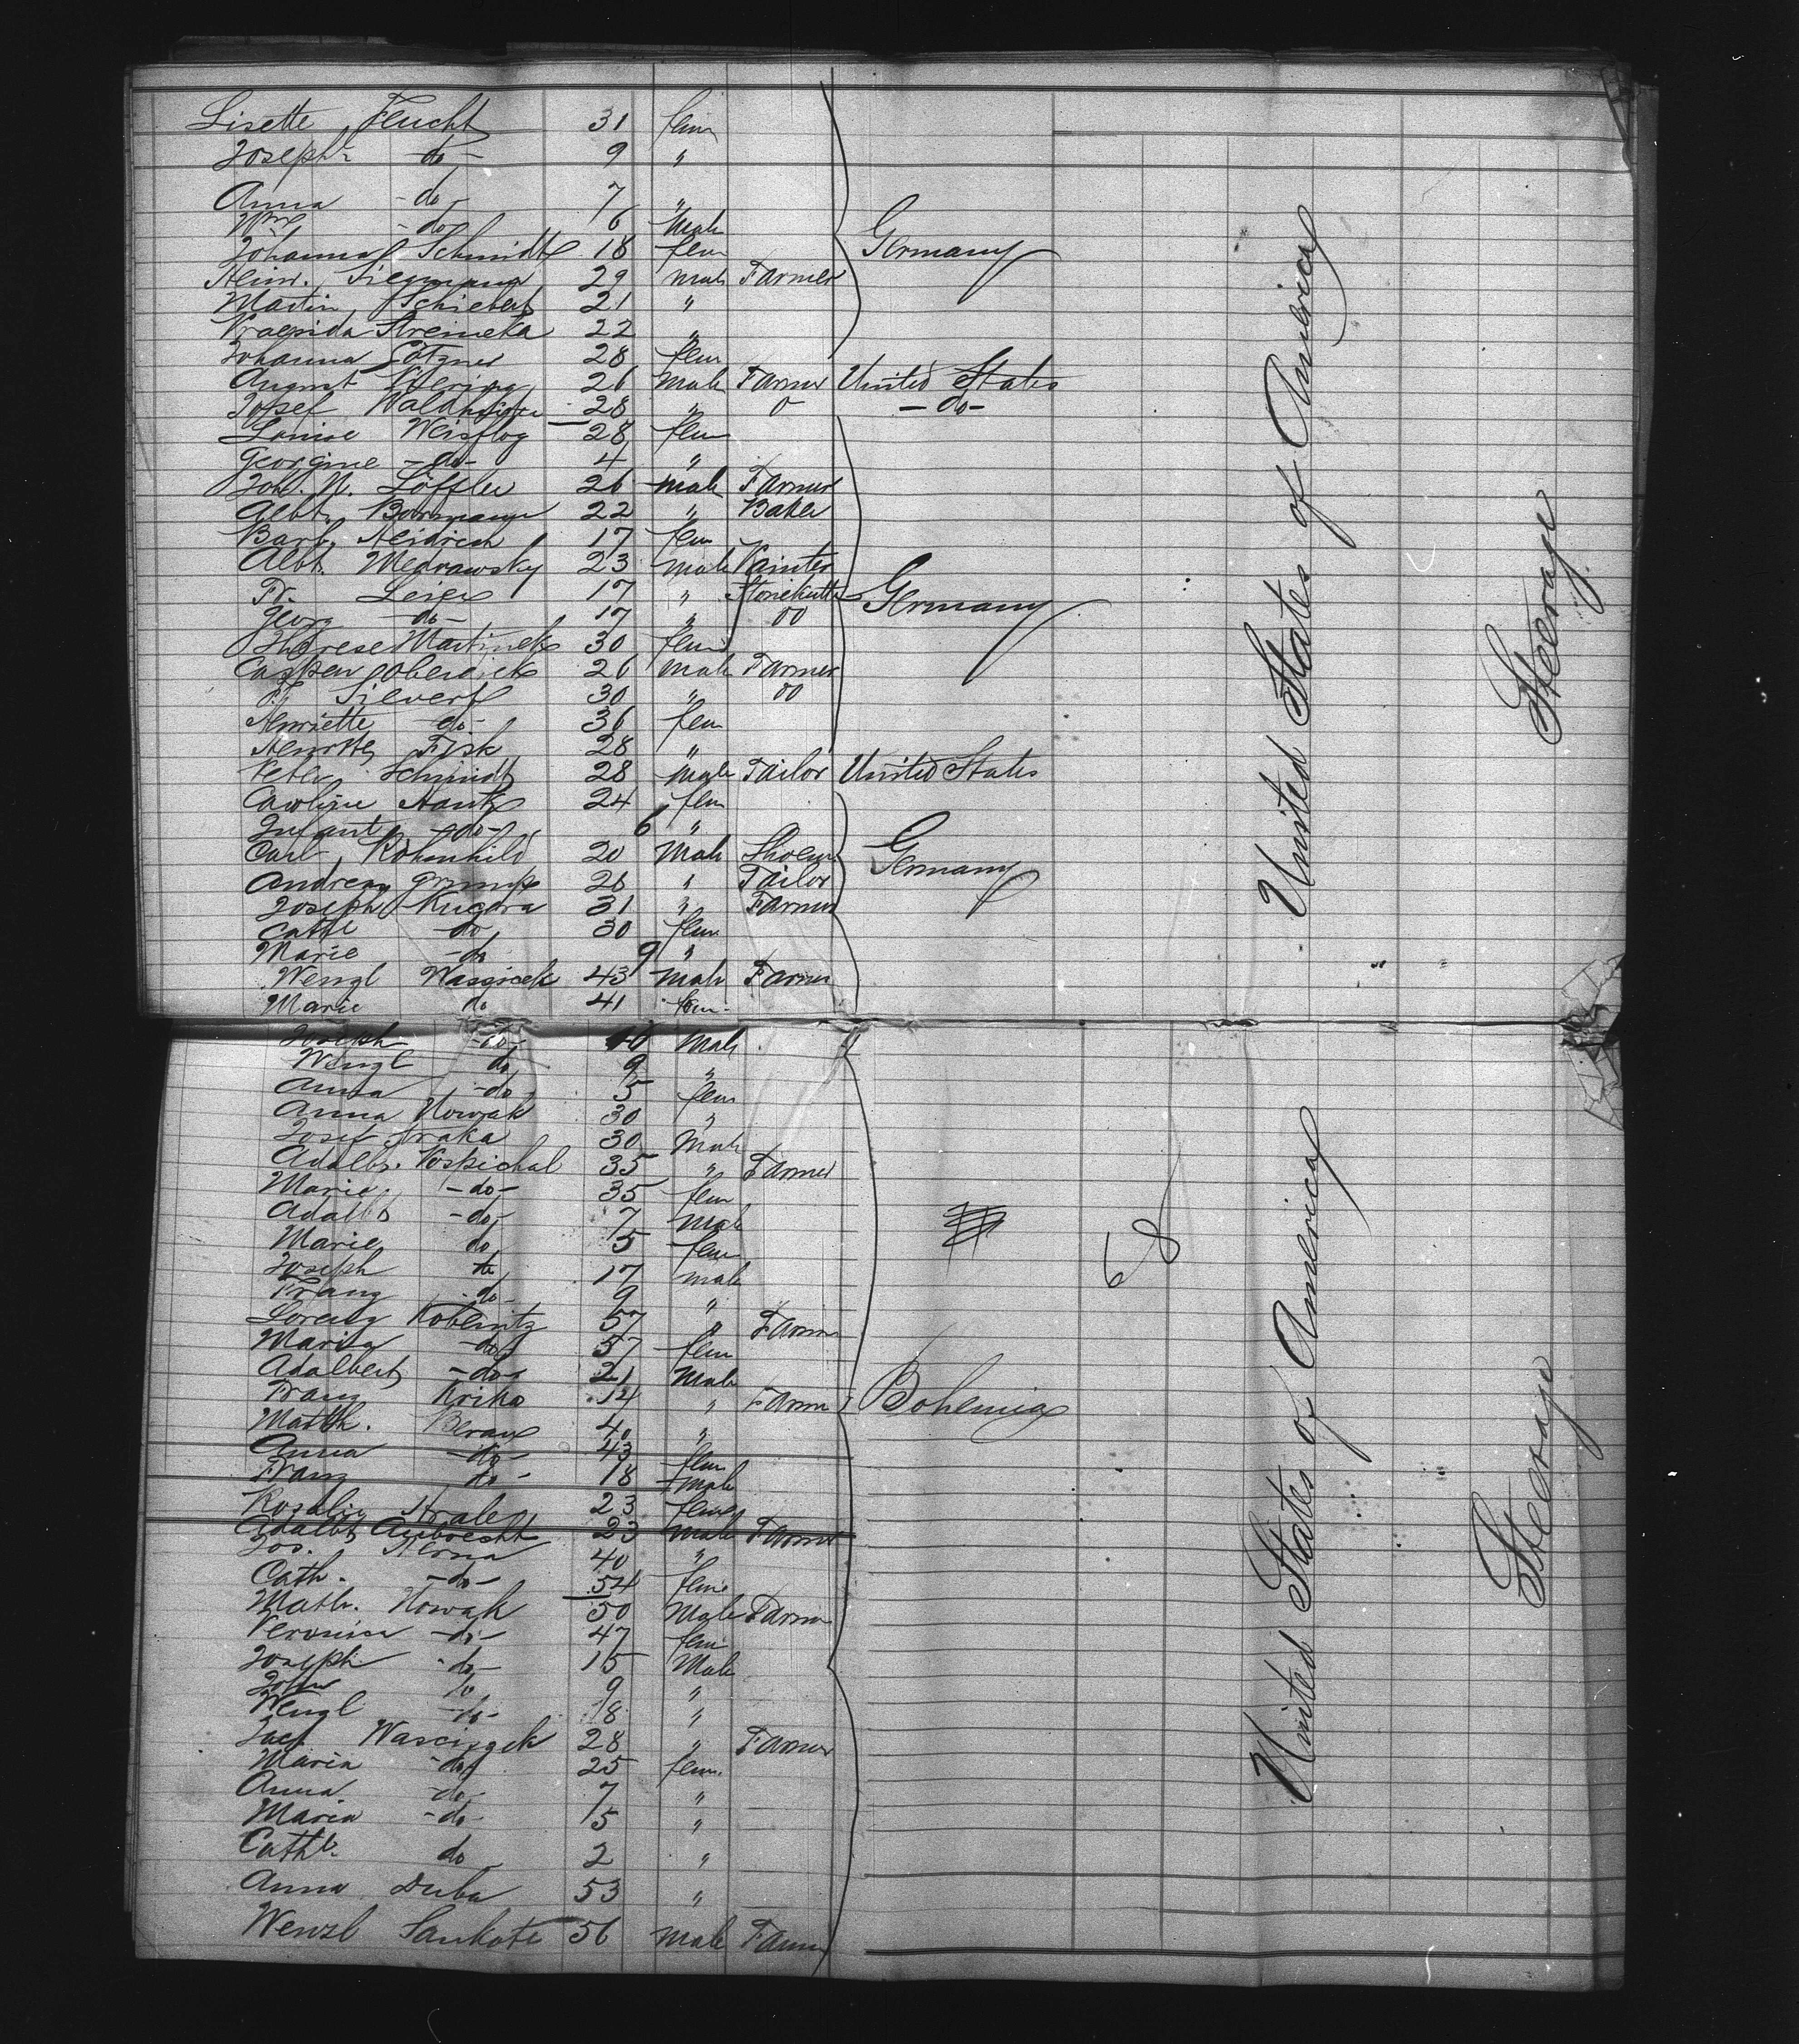 Lisette Feucht 31 fem
Joseph -do- 9 "
Anna -do- 7 "
Wm -do- 6 Male
Johanna Schmidt 18 fem Germany
Heinr. Siegmann 29 male Farmer
Martin Schiebert 21 "
Streineka 22 "
Johanna 28 fem
August Hering 26 male Farmer United States
Josef 28 " o -do-
Louise Weisflog 28 fem
Georgine -do- 4 "
Joh. N. Löffler 26 male Farmer
Albt. Bormann 22 " Baker
Barb. Heidrich 17 fem
Albt. Medrawsky 23 male Painter
Fr. 17 " Germany
Georg -do- 17 " do
Therese Martinek 30 fem
Casper Oberdick 26 male Farmer
F. Sievert 30 " do
Henriette -do- 36 fem
Fisk 28 "
Peter Schmidt 28 male Tailor United States
Caroline 24 fem
Infant -do- 6 "
Carl 20 Male Germany
Andreas 26 " Tailor
Joseph Kucera 31 " Farmer
Cathe -do- 30 fem
Marie -do 9 "
Wenzl 43 Male Farmer
Marie do 41 fem.
Joseph -do- Male
Wenzl do 9 "
Anna -do 5 fem
Anna Nowak 30 "
Josef Straka 30 Male
Adalbr. Pospichal 35 " Farmer
Marie -do- 35 fem
Adalbt -do- 7 Male
Marie do 5 fem
Joseph do 17 male
Franz do- 9 "
Lorenz Koblnitz 57 " Farmer
Maria -do 57 fem
Adalbert -do- 21 Male
Franz 14 " Farm Bohemia
Matth. Beran 40 "
Anna -do- 43 fem
Franz do- 18 male
Rosalie 23 fem
Adalbt 23 male Farmer
Jos. 40 "
Cath. -do- 54 fem
Math. Nowak 50 Male Farmer
Veronica -do- 47 fem
Joseph -do- 15 Male
do 9 "
Wenzl do- 18 "
28 " Farmer
Maria do 25 fem.
Anna do- 7 "
Maria -do- 5 "
Cathe. do 2 "
Anna Duba 53 "
Wenzl 56 male Farmer
68
United States of America
Steerage
United States of America
Steerage